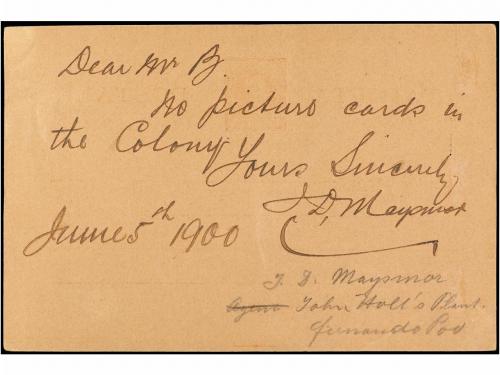 Dear Mr B.
No picture cards in
the Colony
Yours Sincerely
J. D. Maysmor
June 5th 1900
J. D. Maysmor
Agent John Holt's Plant.
Fernando Poo